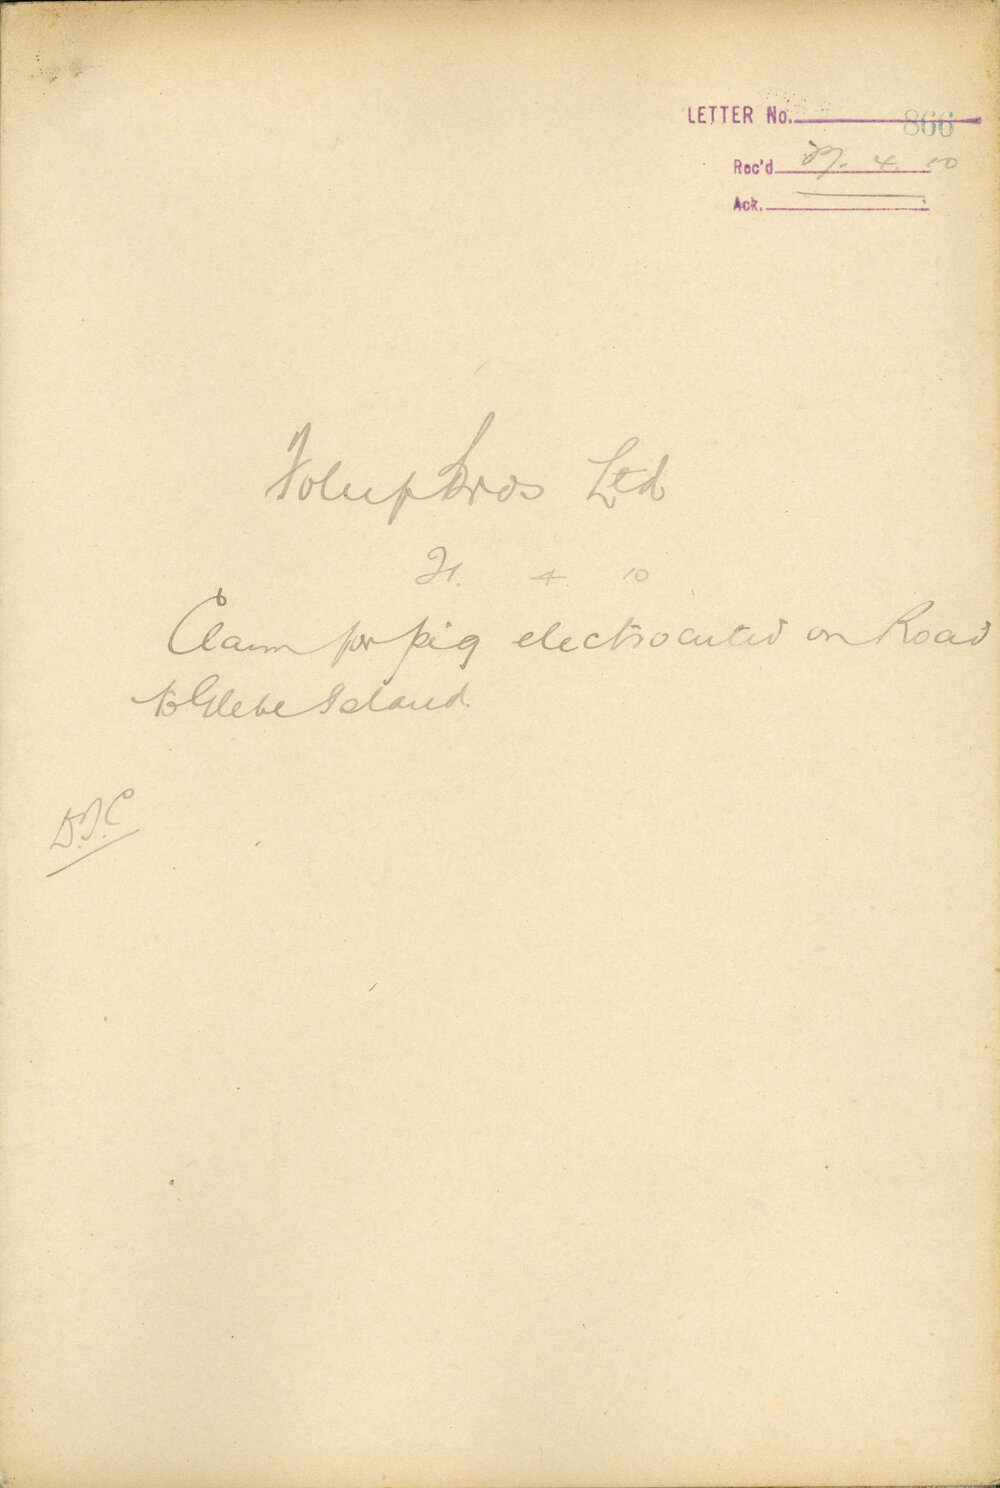 LETTER No. 866
Rec'd 27. 4. 10
Ack.
Bros Ltd
21. 4 10
Claim for pig electrocuted on Road
to Glebe Island.